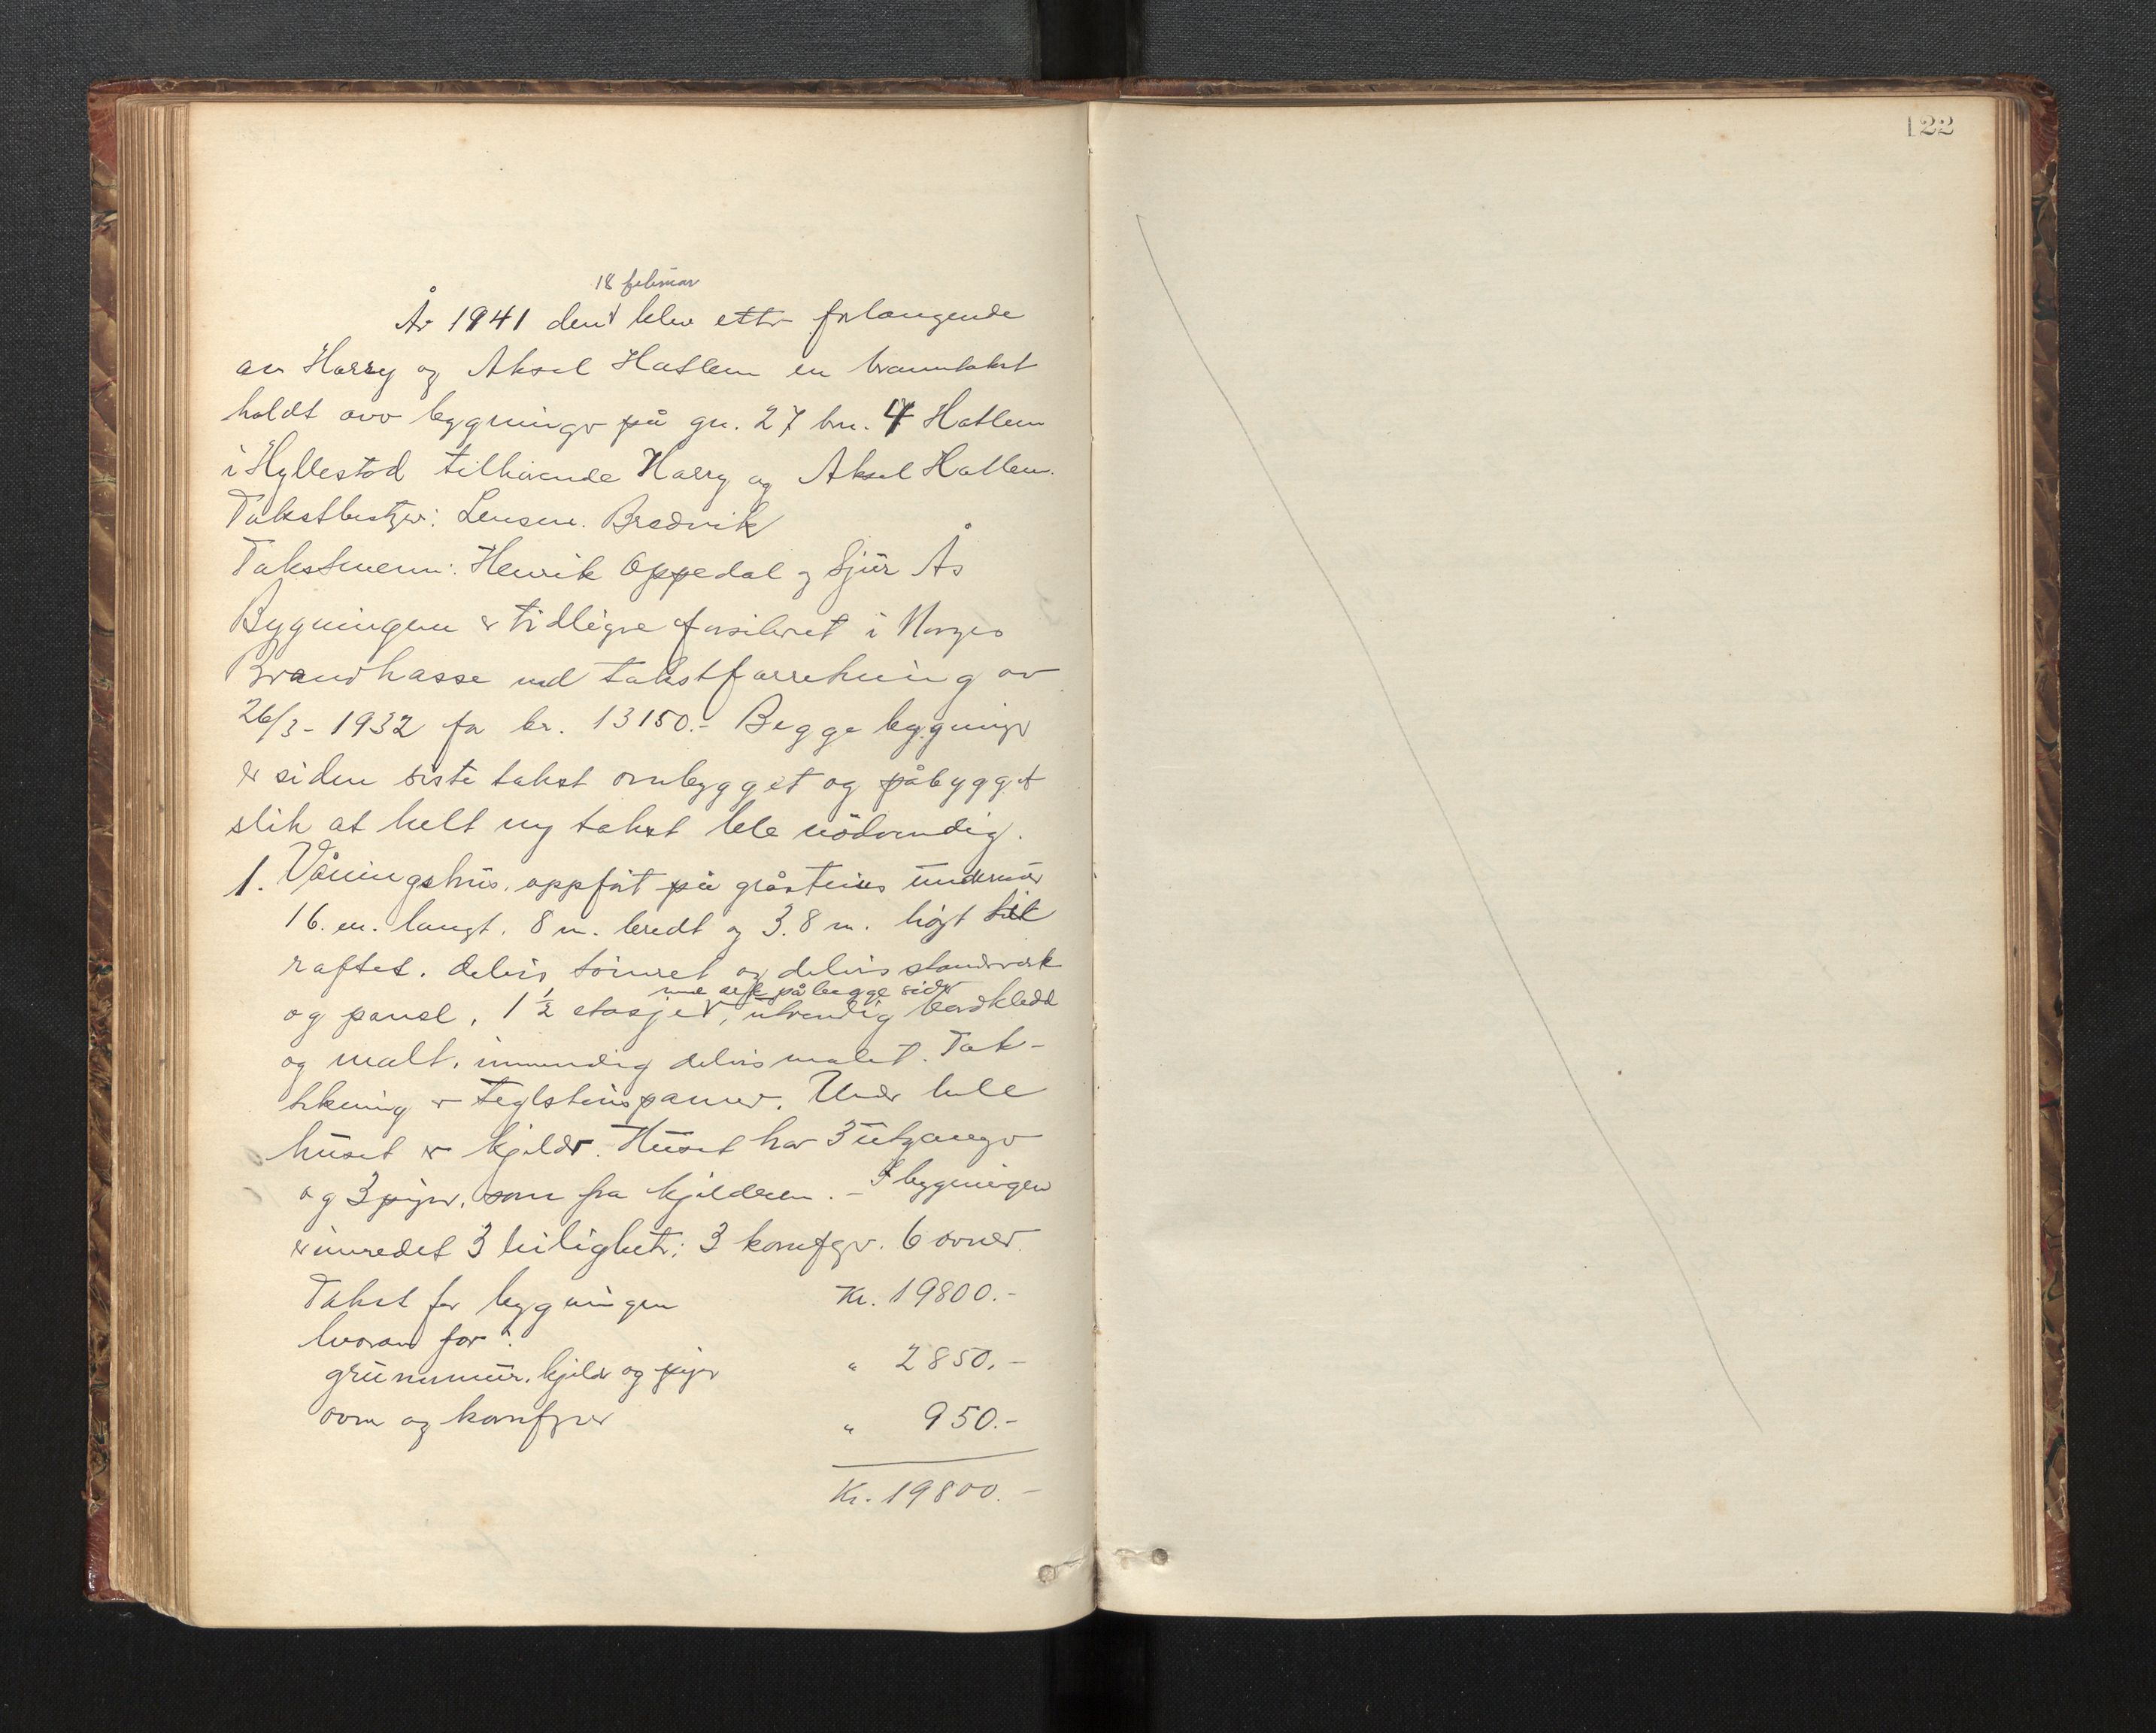 122
18 februar
År 1941 den blev etter forlangende
av Harry og Aksel Hatlem en branntakst
holdt over bygninger på gn. 27 bn. 4 Hatlem
i Hyllestad tilhørende Harry og Aksel Hatlem.
Takstbestyrer: Lensm. Bredvik
Takstmenn: Henrik Oppedal og Sjur Ås
Bygningen er tidligere forsikret i Norges
Brandkasse ved takstforretning av
26/3-1932 for kr. 13150.- Begge bygninger
er siden siste takst ombygget og påbygget
slik at helt ny takst ble nödvendig.
1. Våningshus, oppført på gråsteins undermur
16. m. langt, 8 m. bredt og 3.8 m. högt til
raftet. delvis tömret og delvis standverk
med ark på begge sider
og panel, 1 ½ etasjer, utvendig bordkledd
og malt, innvendig delvis malet. Tak-
tekning er teglsteinspanner. Under hele
huset er kjelder. Huset har 3 utganger
og 3 piper, som fra kjelderen. - I bygningen
er innredet 3 leiligheter: 3 komfyrer. 6 ovner.
Takst for bygningen Kr. 19800.-
hvorav for:
grunnmur, kjelder og piper " 2850.-
ovner og komfyrer " 950.-
Kr. 19800.-